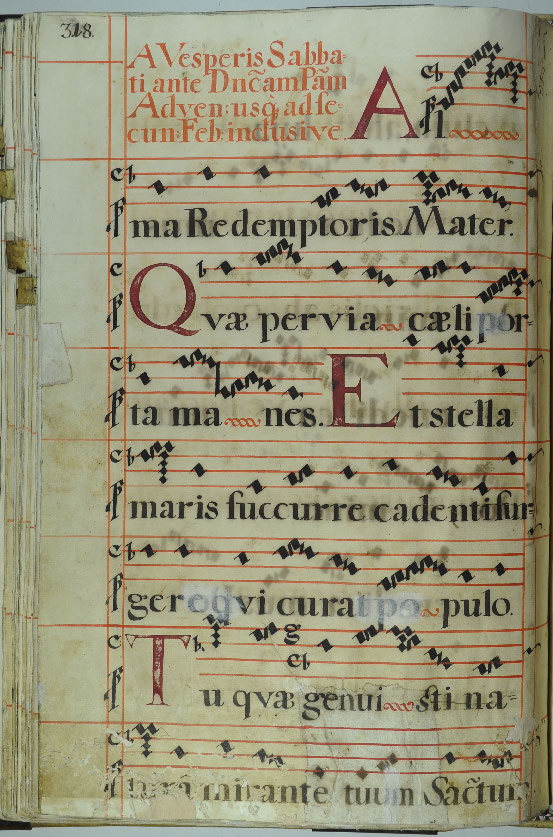 318.
A Vesperis Sabba-
ti ante Dñc̃am Pãm
Adven: usq̃ ad se-
cun: Feb: inclusive
Al
ma Redemptoris Mater.
Qvæ per via cæli pór-
ta ma nes. Et stella
maris succurre cadenti sur-
gere qvi curat po pulo.
Tu qvæ genui sti na-
turã mirante tuum Sac̃tum